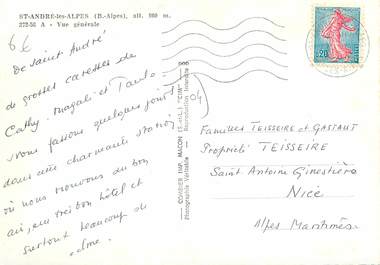 ST-ANDRÉ-les-ALPES (B.-Alpes), alt. 900 m.
272-56 A - Vue générale
6€
De Saint André
de grosses caresses de
Cathy. Magali et Paule
nous passons quelques jours
dans une charmante station
où nous trouvons du bon
air, un très bon hôtel et
surtout beaucoup de
calme.
COMBIER IMP. MACON (S.-et-L.) "CIM"
Photographie Véritable - Reproduction Interdite
04
0,20
Familles TEISSEIRE et GASTAUT
Propriété TEISSEIRE
Saint Antoine Ginestière
Nice
Alpes Maritimes